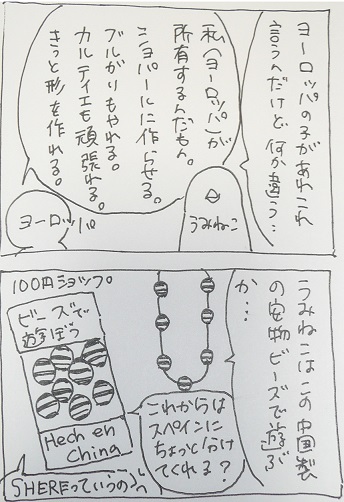 ヨーロッパの子があれこれ
言うんだけど、何か違う…
私(ヨーロッパ)が
所有するんだもん。
ショパールに作らせる。
ブルガリもやれる。
カルティエも頑張れる。
きっと形を作れる。
うみねこ
ヨーロッパ
うみねこはこの中国製
の宝物ビーズで遊ぶ
か…
100円ショップ。
ビーズで
遊ぼう
Hech en
China
これからは
スペインに
ちょっと分け
てくれる?
SHEREっていうの